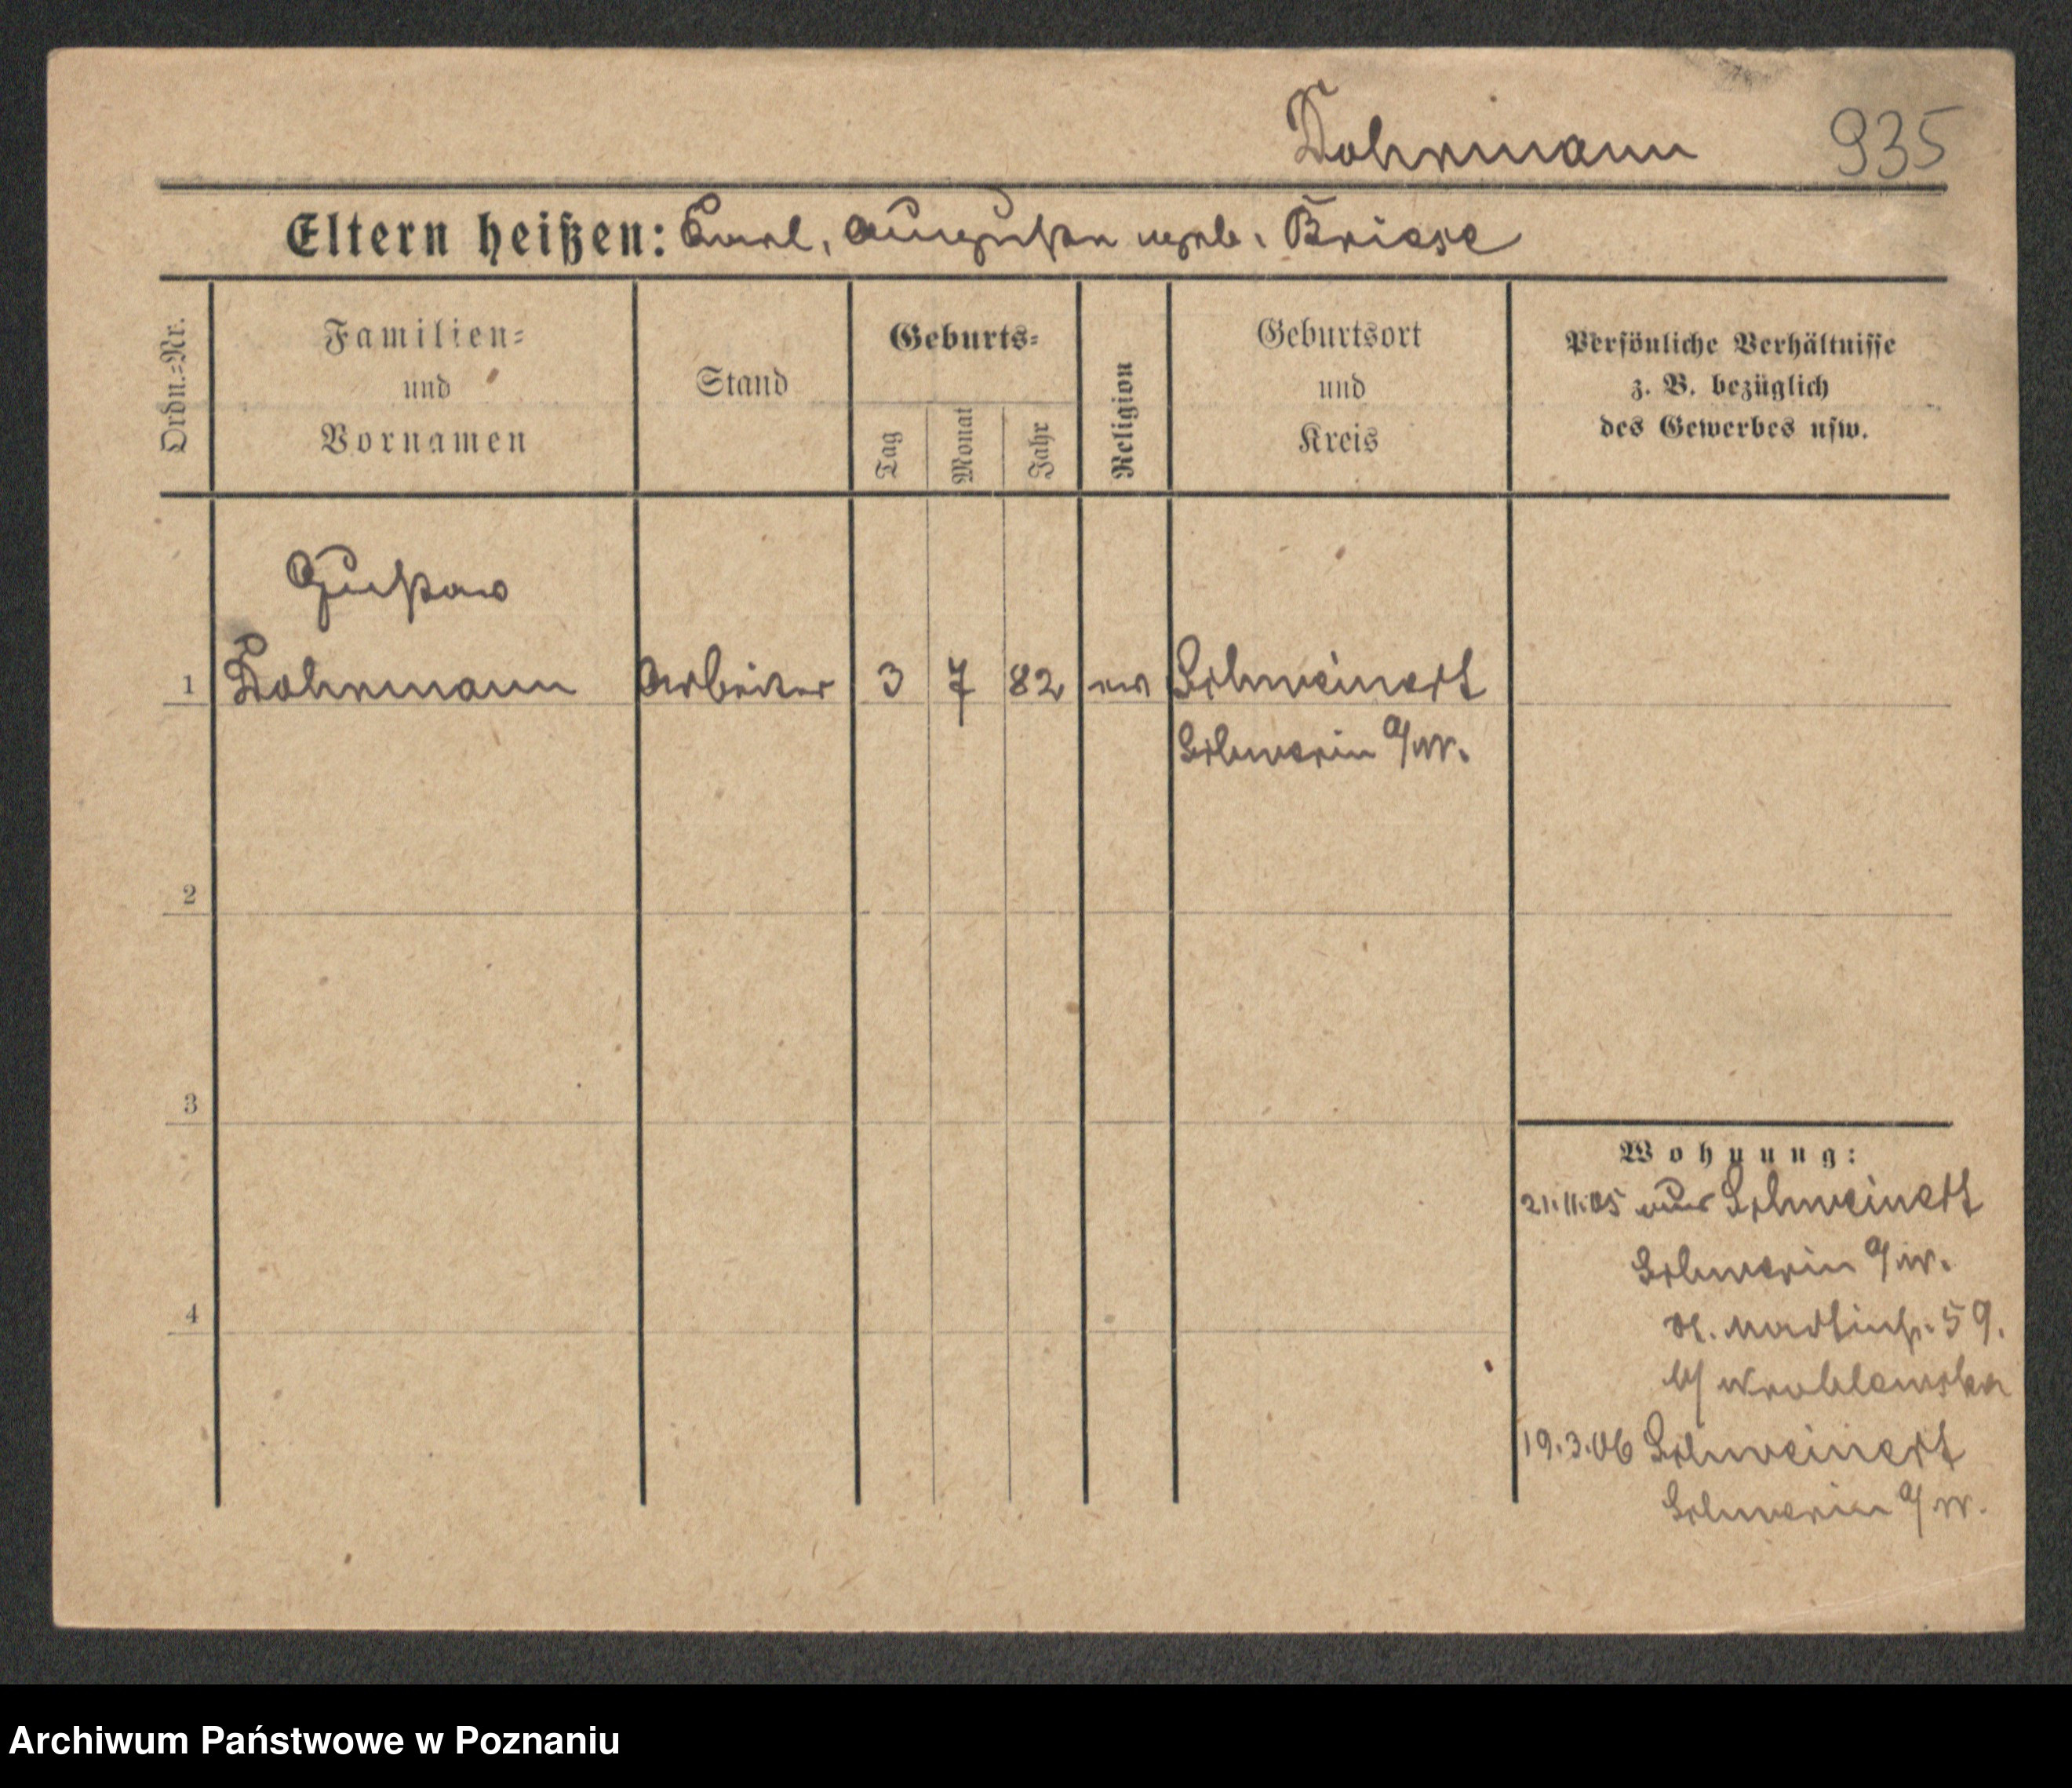 Dohrmann 935
Eltern heißen: Carl, Auguste geb. Briese
Ordn.=Nr.
Familien=
und
Vornamen
Stand
Geburts=
Tag
Monat
Jahr
Religion
Geburtsort
und
Kreis
Persönliche Verhältnisse
z. B. bezüglich
des Gewerbes usw.
Gustav
1 Dohrmann Arbeiter 3 7 82 ev Schweinert
Schwerin a/W.
2
3
4
Wohnung:
21.11.05 aus Schweinert
Schwerin a/W.
St. Martinstr. 59.
b/ Wroblewska
19.3.06 Schweinert
Schwerin a/W.
Archiwum Państwowe w Poznaniu